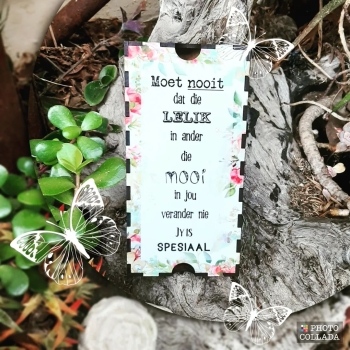 Moet nooit
dat die
LELIK
in ander
die
mooi
in jou
verander nie
Jy is
SPESIAAL
PHOTO
COLLADA